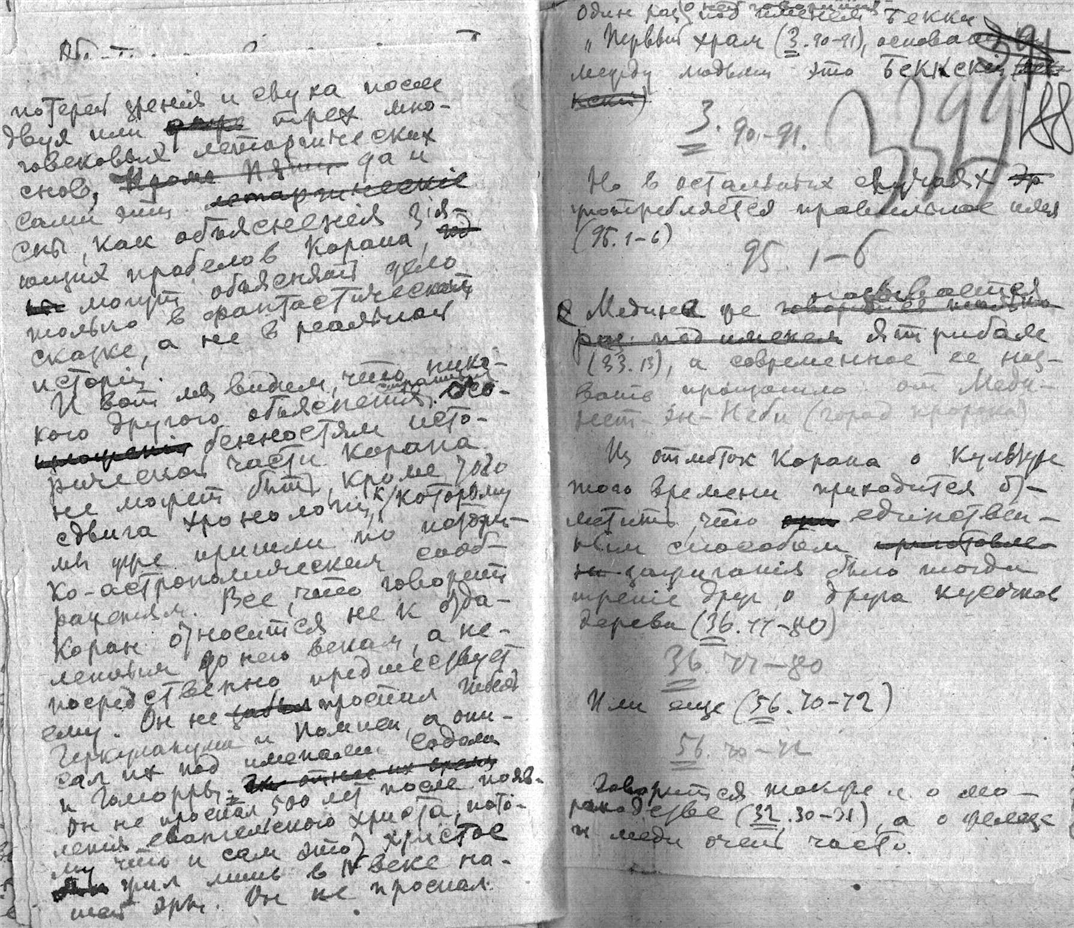 потерей зрения и слуха после
двух или трех мно-
говековых летаргических
снов, Кроме да и
сами эти летаргические
сны, как объяснения зия-
ющих пробелов Корана,
могут объяснять дело
только в фантастической
сказке, а не в реальной
истории.
И вот мы видим, что ника-
кого другого объяснения осо-
бенностям исто-
рической части Корана
не может быть, кроме того
сдвига хронологии, к которому
мы уже пришли по
ко-астрономическим сооб-
ражениям. Все, что говорит
Коран относится не к отда-
ленным до него векам, а не-
посредственно предшествует
ему. Он не проспал гибель
Геркуланума и Помпеи, а опи-
сал их под именем Содома
и Гоморры.
Он не проспал 500 лет после появ-
ления евангельского Христа, пото-
му что и сам этот Христос
жил лишь в IV веке на-
шей эры. Он не проспал
один раз под именем Бекки
„Первый храм (3. 90-91), основан
между людьми это Беккский
3. 90-91.
3399
188
Но в остальных случаях
употребляется правильное имя
(95. 1-6)
95. 1-6
называется
Медина же Ятрибом
(33. 13), а современное ее наз-
вание произошло от Меди-
нет-эн-Неби (город пророка)
Из отметок Корана о культуре
того времени приходится от-
метить, что единствен-
ным способом
зажигания было тогда
трение друг о друга кусочков
дерева (36. 77-80)
36. 77-80
Или еще (56. 70-72)
56. 70-72
Говорится также и о мо-
реходстве (32. 30-31), а о железе
и меди очень часто.